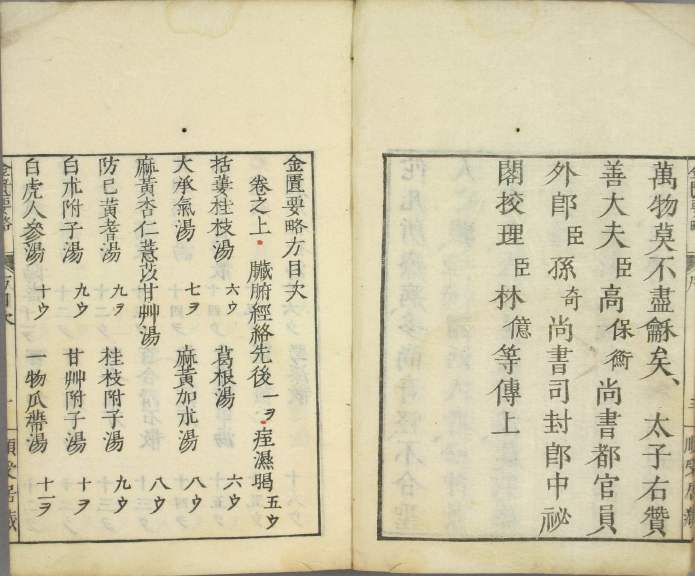 萬物莫不盡龢矣、太子右贊
善大夫臣高保衡尚書都官員
外郎臣孫奇尚書司封郎中祕
閣挍理臣林億等傳上
金匱要略方目次
卷之上 臟腑經絡先後一ヲ 痓濕暍五ウ
括蔞桂枝湯六ウ 葛根湯六ウ
大承氣湯七ヲ 麻黃加朮湯八ウ
麻黃杏仁薏苡甘艸湯八ウ
防已黃耆湯九ヲ 桂枝附子湯九ウ
白朮附子湯九ウ 甘艸附子湯十ヲ
白虎人參湯十ウ 一物瓜蒂湯十一ヲ